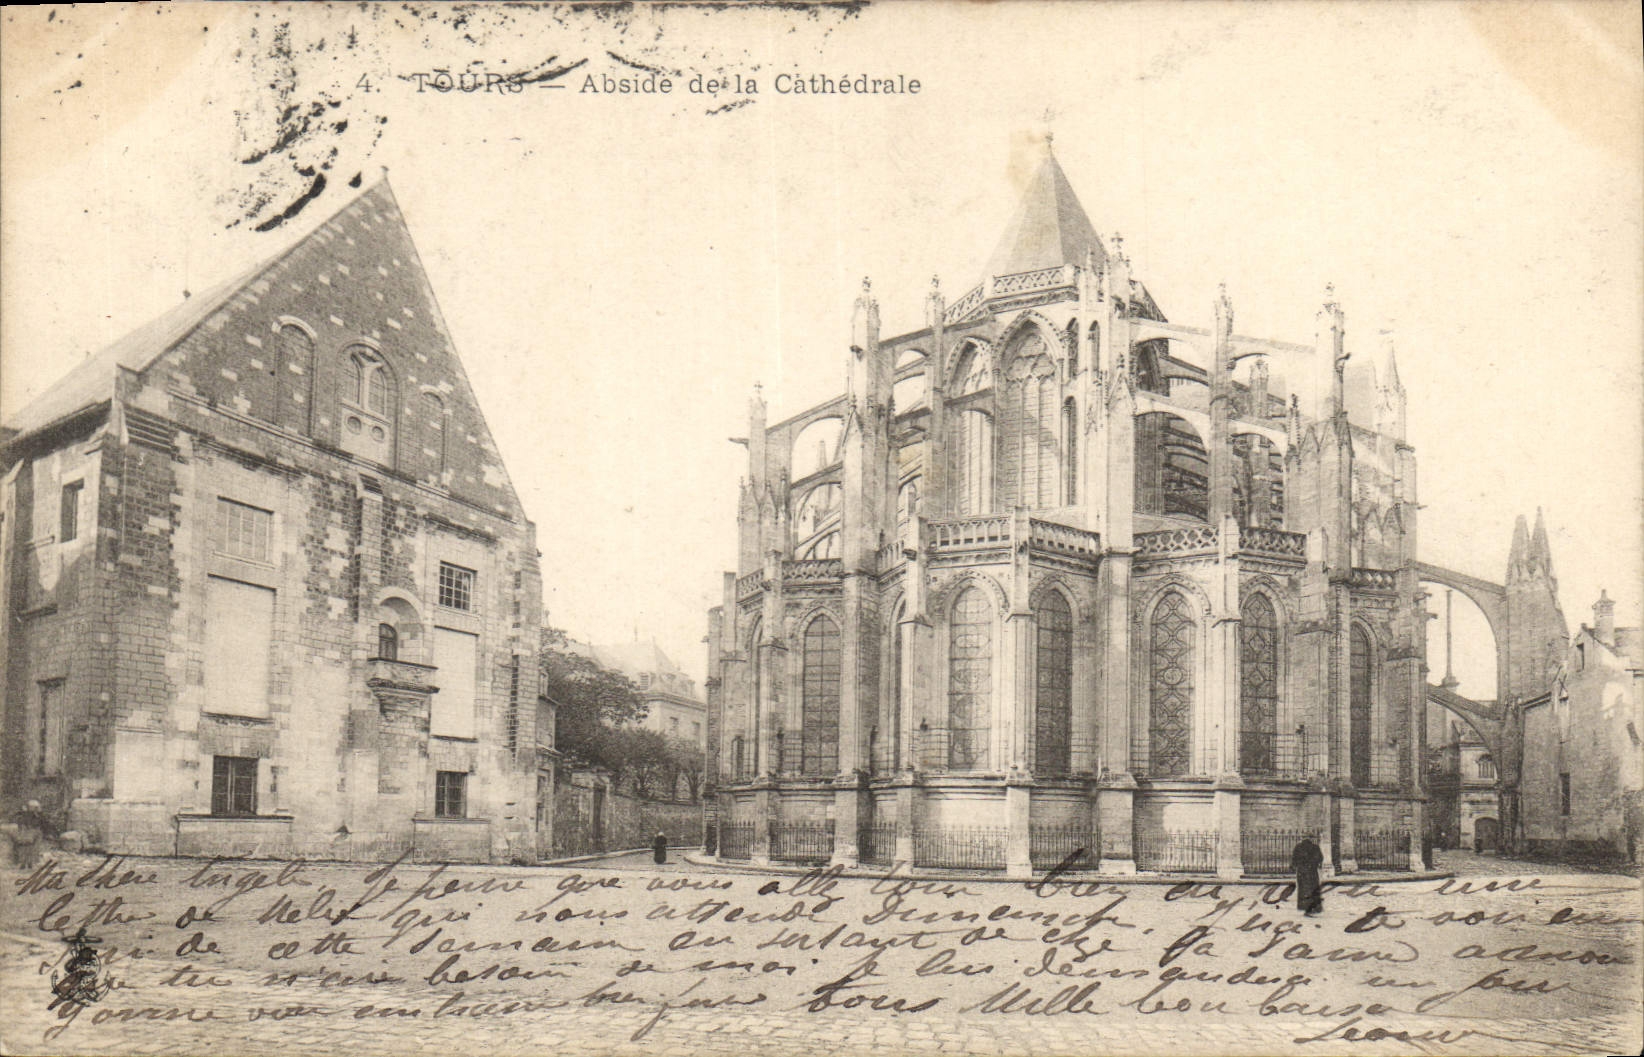 4. TOURS — Abside de la Cathédrale
Ma chère Angele, Je pense que vous allez tous bien ai reçu une
lettre de qui nous attende Dimanche. J'irai te voir un
de cette semaine en sortant de chez la Dame
que tu n'aie besoin de moi je lui demanderai un jour
bien tous Mille bon baiser